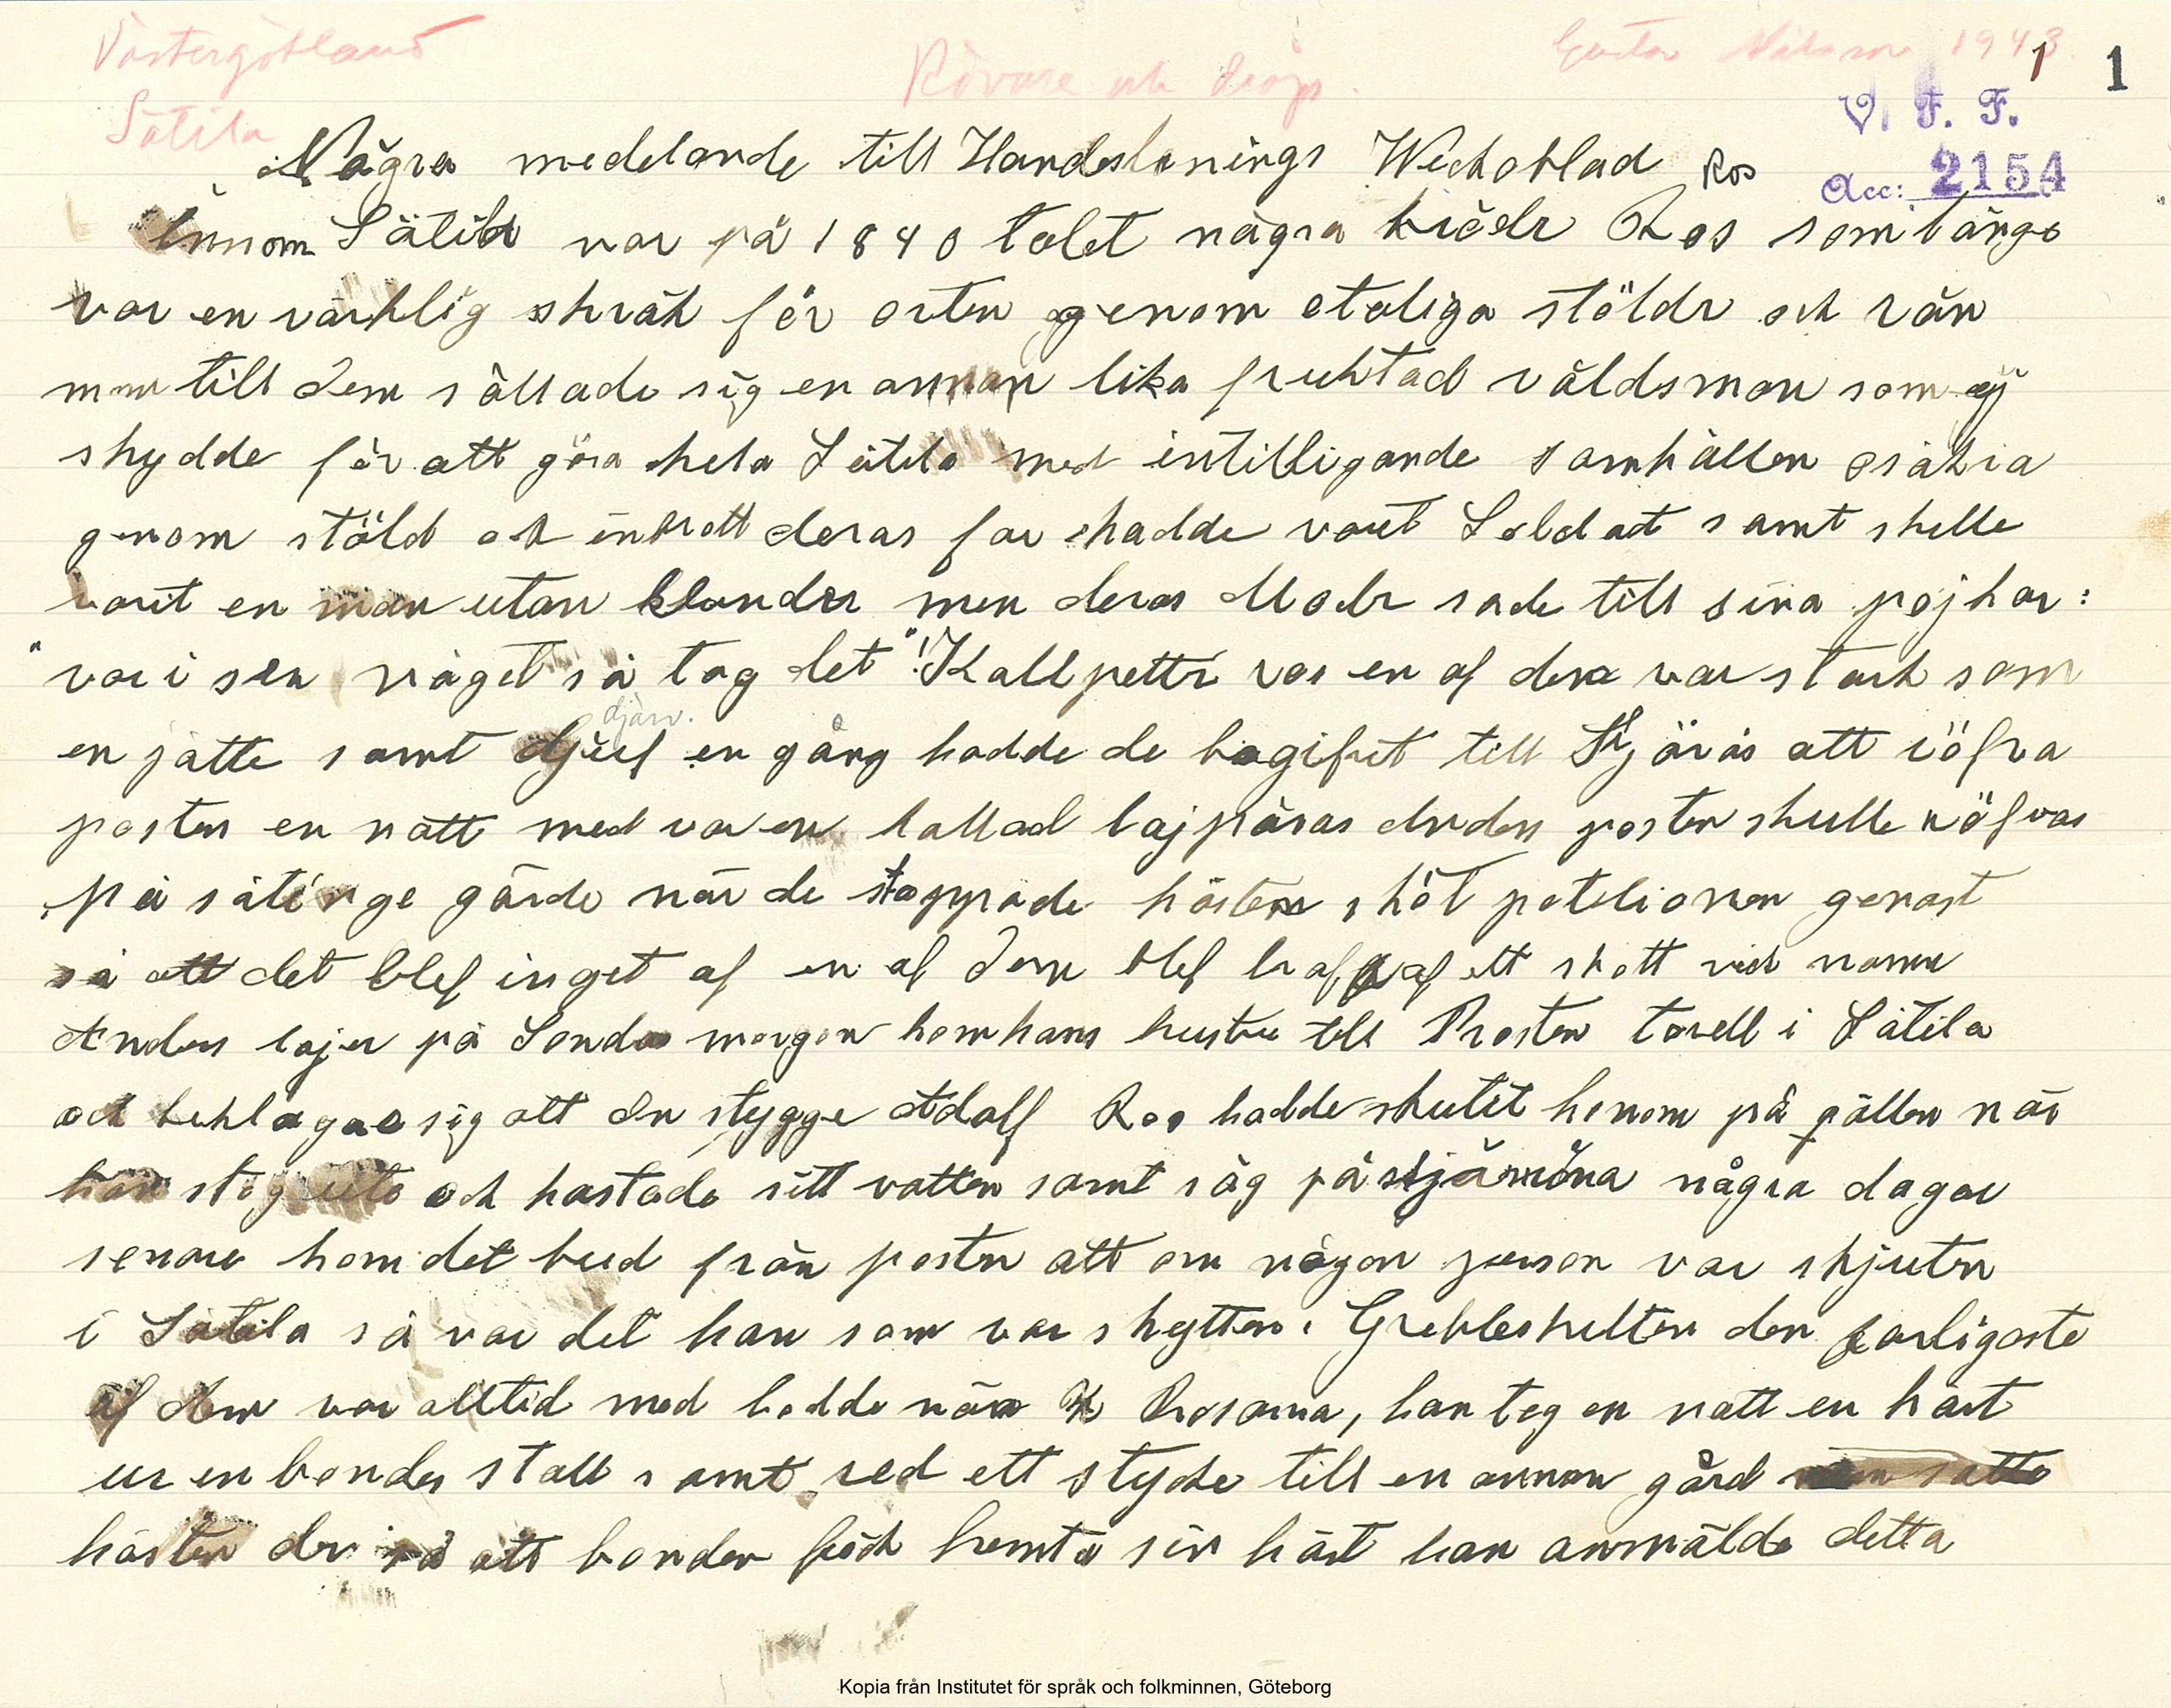 Västergötland
Sätila
Rövare och dråp.
Gustav Nilsson 1943
1
1
V. F. F.
Acc: 2154
Några medelande till Handeslonings Weckoblad Ros
Innom Sätila var på 1840 talet några brödr Ros som länge
var en värklig skräk för orten genom otaliga stöldr och rån
men till dem sällade sig en annan lika fruktad våldsman som ej
skydde för att göra hela Sätila med intilligande samhällen osäkra
genom stöld och inbrott deras far hadde varit Soldat samt skulle
varit en man utan klander men deras Modr sade till sina pojkar:
"var i sen någet så tag det"! Kallpettr var en af dem var stark som
djärv.
en jätte samt djerf en gång hadde de begifvit till Kjärås att röfva
posten en natt med var en kallad lajpäras Anders posten skulle röfvas
på sätinge gärde när de stoppade hästen sköt potelionen genast
så att det blef inget af en af dem blef traff af ett skott vid namn
Anders lajer på Sonda morgon kom hans hustru till Prosten torell i Sätila
och beklagae sig att den stygge Adolf Ros hadde skutit honom på gällen när
han stog ute och kastade sitt vatten samt såg på stjärnorna några dagar
senare kom det bud från posten att om någon person var skjuten
i Sätila så var det han som var skytten. Grebbeshulten den farligaste
af dem var alltid med bodde nära Rosarna, han tog en natt en häst
ur en bondes stall samt red ett stycke till en annan gård satte
hästen der så att bonden fick hemta sin häst han anmälde detta
Kopia från Institutet för språk och folkminnen, Göteborg